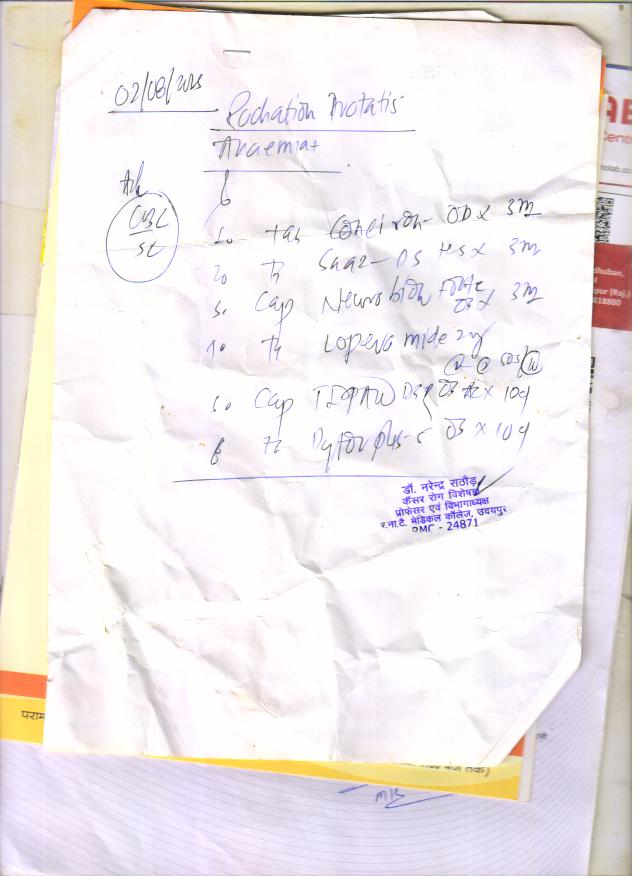 02/08/2023
Radiation Protatis
Anaemia+
Adv
CBC
SE
1. Tab Coneiron OD x 3m
2. Tb Saaz-DS HS x 3m
3. Cap Neurobion Forte OD x 3m
Tb Loperamide 2mg
SOS
5. Cap DSR OD AC x 10d
6 Tb Dytor plus-5 OD x 10d
डॉ. नरेन्द्र राठौड़
कैंसर रोग विशेषज्ञ
प्रोफेसर एवं विभागाध्यक्ष
र.ना.टै. मेडिकल कॉलेज, उदयपुर
RMC - 24871
AB
Centr
olab.co
dhuban,
pur (Raj.)
818880
पराम
बजे तक)